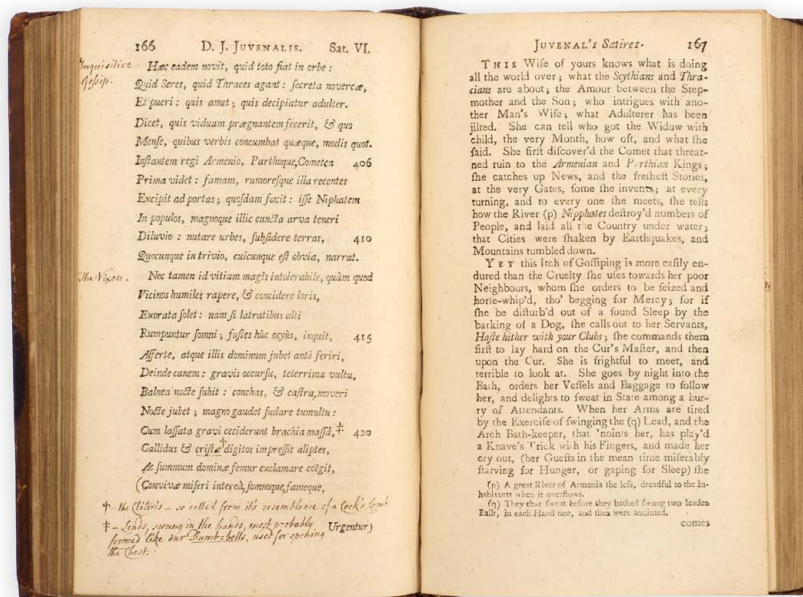 166 D. J. JUVENALIS. Sat. VI.
Inquisitive
Gossip.
Hæc eadem novit, quid toto fiat in orbe :
Quid Seres, quid Thraces agant : secreta novercæ,
Et pueri : quis amet ; quis decipiatur adulter.
Dicet, quis viduam prægnantem fecerit, & quo
Mense, quibus verbis concumbat quæque, modis quot.
Instantem regi Armenio, Parthoque, Cometen 406
Prima videt : famam, rumoresque illa recentes
Excipit ad portas ; quosdam facit : isse Niphatem
In populos, magnoque illic cuncta arva teneri
Diluvio : nutare urbes, subsidere terras, 410
Quocunque in trivio, cuicunque est obvia, narrat.
The Vixen.
Nec tamen id vitium magis intolerabile, quàm quod
Vicinos humiles rapere, & concidere loris,
Exorata solet : nam si latratibus alti
Rumpuntur somni ; fustes hùc ocyùs, inquit, 415
Afferte, atque illis dominum jubet antè feriri,
Deinde canem : gravis occursu, teterrima vultu,
Balnea nocte subit : conchas, & castra, moveri
Nocte jubet ; magno gaudet sudare tumultu :
Cum lassata gravi ceciderunt brachia massâ,‡ 420
Callidus & cristæ† digitos impressit aliptes,
Ac summum dominæ femur exclamare coëgit,
(Convivæ miseri intereà, somnoque, fameque,
Urgentur)
† – the Clitoris – so called from its resemblance of a Cock's Comb
‡ – Leads, swung in the hands, most probably
formed like our Dumb-bells, used for opening
the Chest.
JUVENAL's Satires. 167
THIS Wife of yours knows what is doing
all the world over ; what the Scythians and Thra-
cians are about ; the Amour between the Step-
mother and the Son ; who intrigues with ano-
ther Man's Wife ; what Adulterer has been
jilted. She can tell who got the Widow with
child, the very Month, how oft, and what she
said. She first discover'd the Comet that threat-
ned ruin to the Armenian and Parthian Kings ;
she catches up News, and the freshest Stories,
at the very Gates, some she invents ; at every
turning, and to every one she meets, she tells
how the River (p) Nipphates destroy'd numbers of
People, and laid all the Country under water ;
that Cities were shaken by Earthquakes, and
Mountains tumbled down.
YET this Itch of Gossiping is more easily en-
dured than the Cruelty she uses towards her poor
Neighbours, whom she orders to be seized and
horse-whip'd, tho' begging for Mercy ; for if
she be disturb'd out of a sound Sleep by the
barking of a Dog, she calls out to her Servants,
Haste hither with your Clubs ; she commands them
first to lay hard on the Cur's Master, and then
upon the Cur. She is frightful to meet, and
terrible to look at. She goes by night into the
Bath, orders her Vessels and Baggage to follow
her, and delights to sweat in State among a hur-
ry of Attendants. When her Arms are tired
by the Exercise of swinging the (q) Lead, and the
Arch Bath-keeper, that 'noints her, has play'd
a Knave's Trick with his Fingers, and made her
cry out, (her Guests in the mean time miserably
starving for Hunger, or gaping for Sleep) she
(p) A great River of Armenia the less, dreadful to the In-
habitants when it overflows.
(q) They that sweat before they bathed swung two leaden
Balls, in each Hand one, and then were anointed.
comes